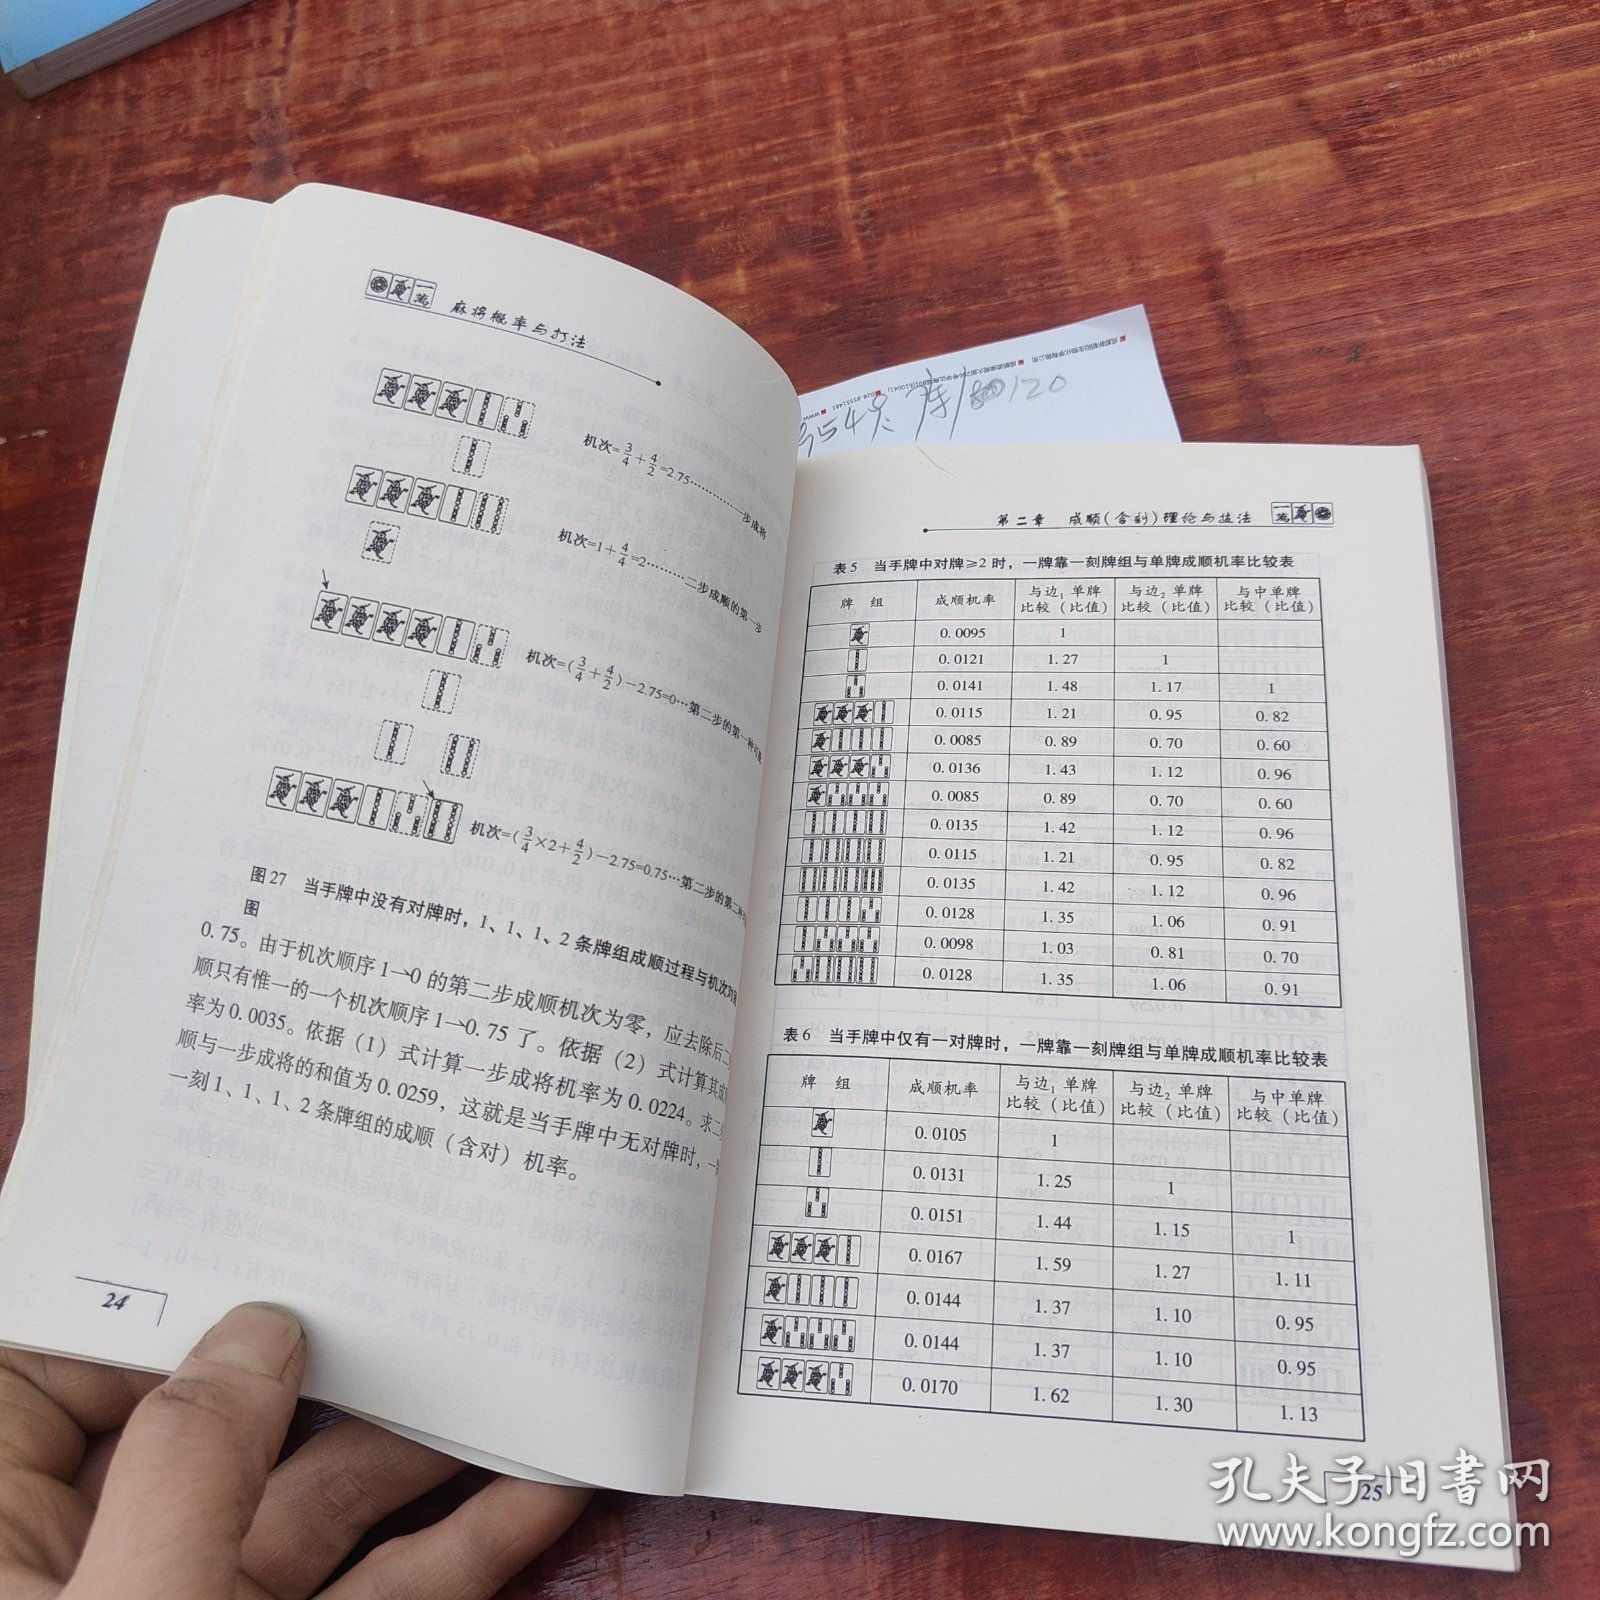 麻将概率与打法
机次=3/4+4/2=2.75…………一步成将
机次=1+4/4=2………二步成顺的第一步
机次=(3/4+4/2)-2.75=0…第二步的第一种可能
机次=(3/4×2+4/2)-2.75=0.75…第二步的第二种
图27 当手牌中没有对牌时，1、1、1、2条牌组成顺过程与机次对
图
0.75。由于机次顺序1→0的第二步成顺机次为零，应去除后二
顺只有惟一的一个机次顺序1→0.75了。依据（2）式计算其成
率为0.0035。依据（1）式计算一步成将机率为0.0224。求二
顺与一步成将的和值为0.0259，这就是当手牌中无对牌时，一
一刻1、1、1、2条牌组的成顺（含对）机率。
24
第二章 成顺(含刻)理论与技法
表5 当手牌中对牌≥2时，一牌靠一刻牌组与单牌成顺机率比较表
牌 组 成顺机率 与边1单牌比较（比值） 与边2单牌比较（比值） 与中单牌比较（比值）
0.0095 1
0.0121 1.27 1
0.0141 1.48 1.17 1
0.0115 1.21 0.95 0.82
0.0085 0.89 0.70 0.60
0.0136 1.43 1.12 0.96
0.0085 0.89 0.70 0.60
0.0135 1.42 1.12 0.96
0.0115 1.21 0.95 0.82
0.0135 1.42 1.12 0.96
0.0128 1.35 1.06 0.91
0.0098 1.03 0.81 0.70
0.0128 1.35 1.06 0.91
表6 当手牌中仅有一对牌时，一牌靠一刻牌组与单牌成顺机率比较表
牌 组 成顺机率 与边1单牌比较（比值） 与边2单牌比较（比值） 与中单牌比较（比值）
0.0105 1
0.0131 1.25 1
0.0151 1.44 1.15 1
0.0167 1.59 1.27 1.11
0.0144 1.37 1.10 0.95
0.0144 1.37 1.10 0.95
0.0170 1.62 1.30 1.13
25
孔夫子旧书网
www.kongfz.com